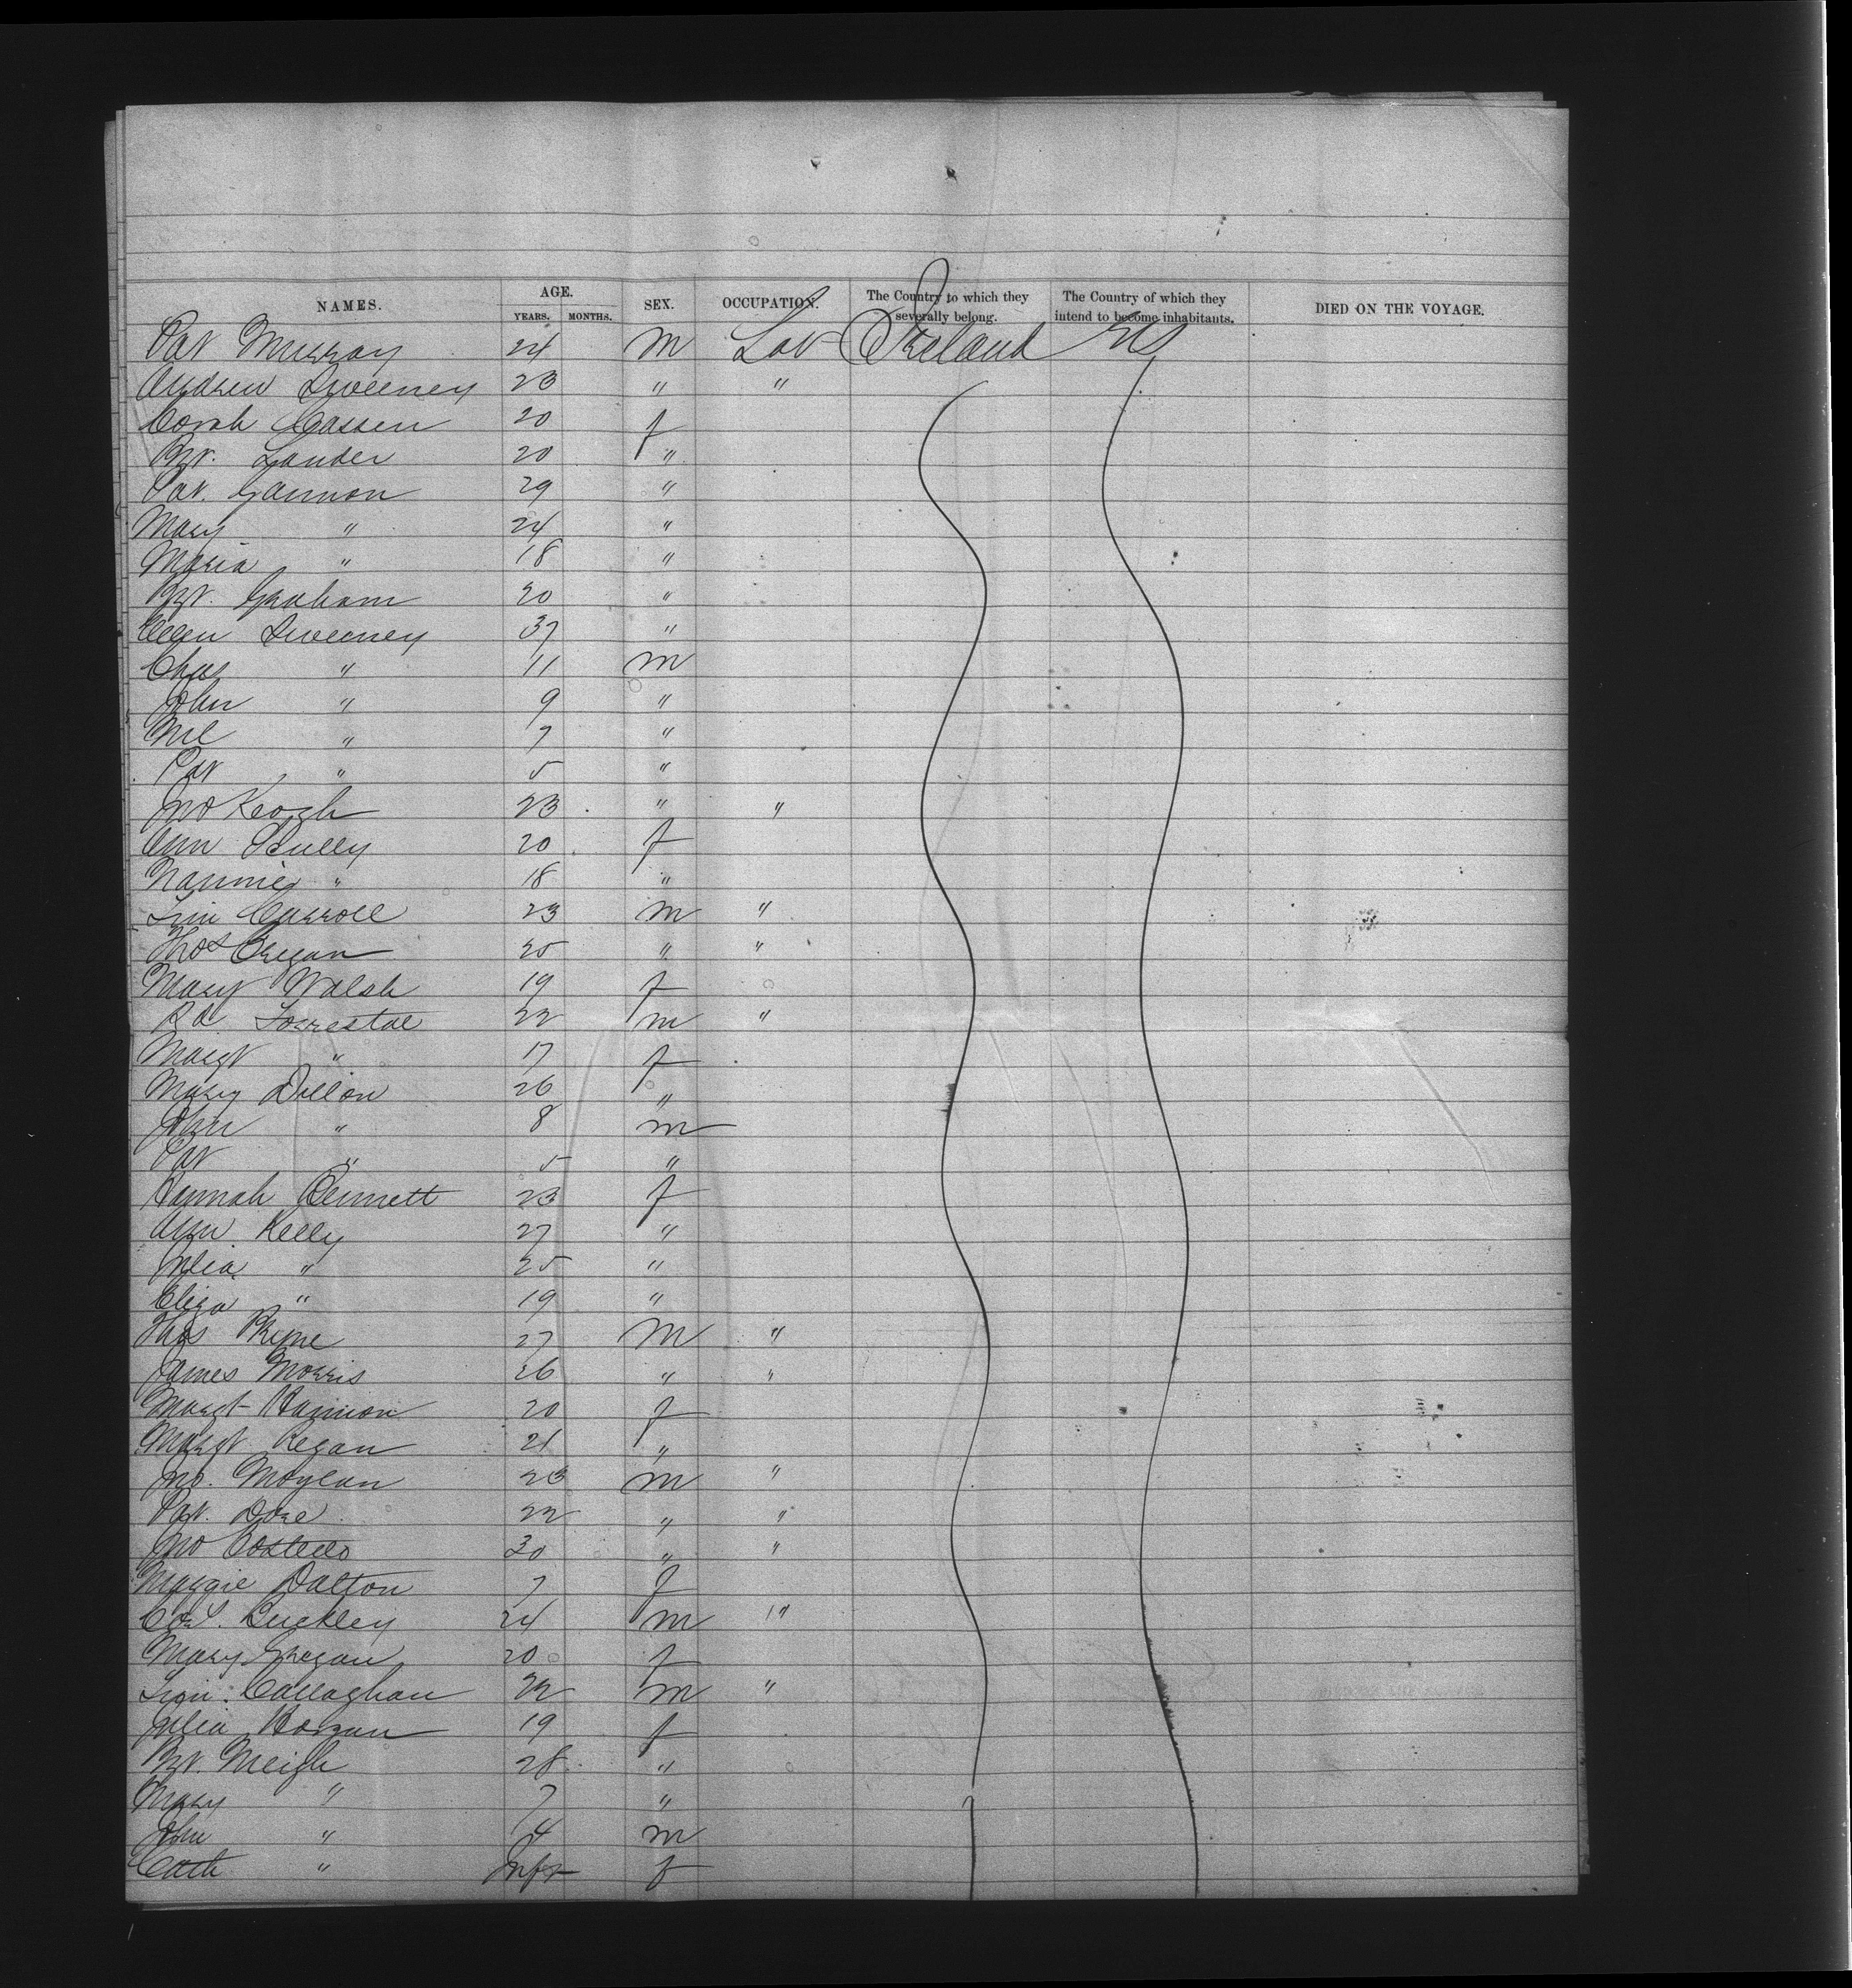 NAMES. AGE. YEARS. MONTHS. SEX. OCCUPATION. The Country to which they severally belong. The Country of which they intend to become inhabitants. DIED ON THE VOYAGE.
Pat Murray 24 m Lab Ireland US
Andrew Sweeney 23 " "
Cassen 20 f
Bgt. Lander 20 "
Pat. Gannon 29 "
Mary " 24 "
Maria " 18 "
Bgt. Graham 20 "
Ellen Sweeney 37 "
Chas " 11 m
John " 9 "
Ml " 7 "
Pat " 5 "
Jno Keogh 23 " "
Ann Scully 20 f
Nannie " 18 "
Tim Carroll 23 m "
Thos 25 " "
Mary Walsh 19 f
Rd Forrestal 22 m "
Margt " 17 f
Mary Dillon 26 "
John " 8 m
Pat " 5 "
Hannah Bennett 23 f
Ann Kelly 27 "
Julia " 25 "
Eliza " 19 "
Thos 27 m "
James Morris 26 " "
Margt Hannon 20 f
Margt Regan 21 "
Jno. Moylan 23 m "
Pat. Dore 22 " "
Jno Costello 30 " "
Maggie Dalton 7 f
Corl. Buckley 24 m "
Mary 20 f
Tim. Callaghan 22 m "
Julia Horgan 19 f
Bgt. Meigh 28 "
Mary " 7 "
John " 4 m
Cath " Inft f